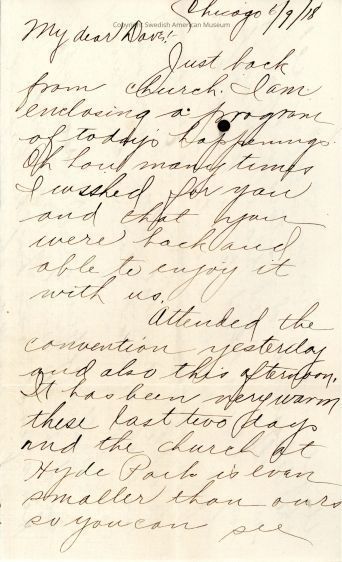 Chicago 6/9/18
Copyright Swedish American Museum
My dear Dave:-
Just back
from church. I am
enclosing a program
of today's happenings.
Oh how many times
I wished for you
and that you
were back and
able to enjoy it
with us.
Attended the
convention yesterday
and also this afternoon.
It has been very warm
these last two days
and the church at
Hyde Park is even
smaller than ours
so you can see